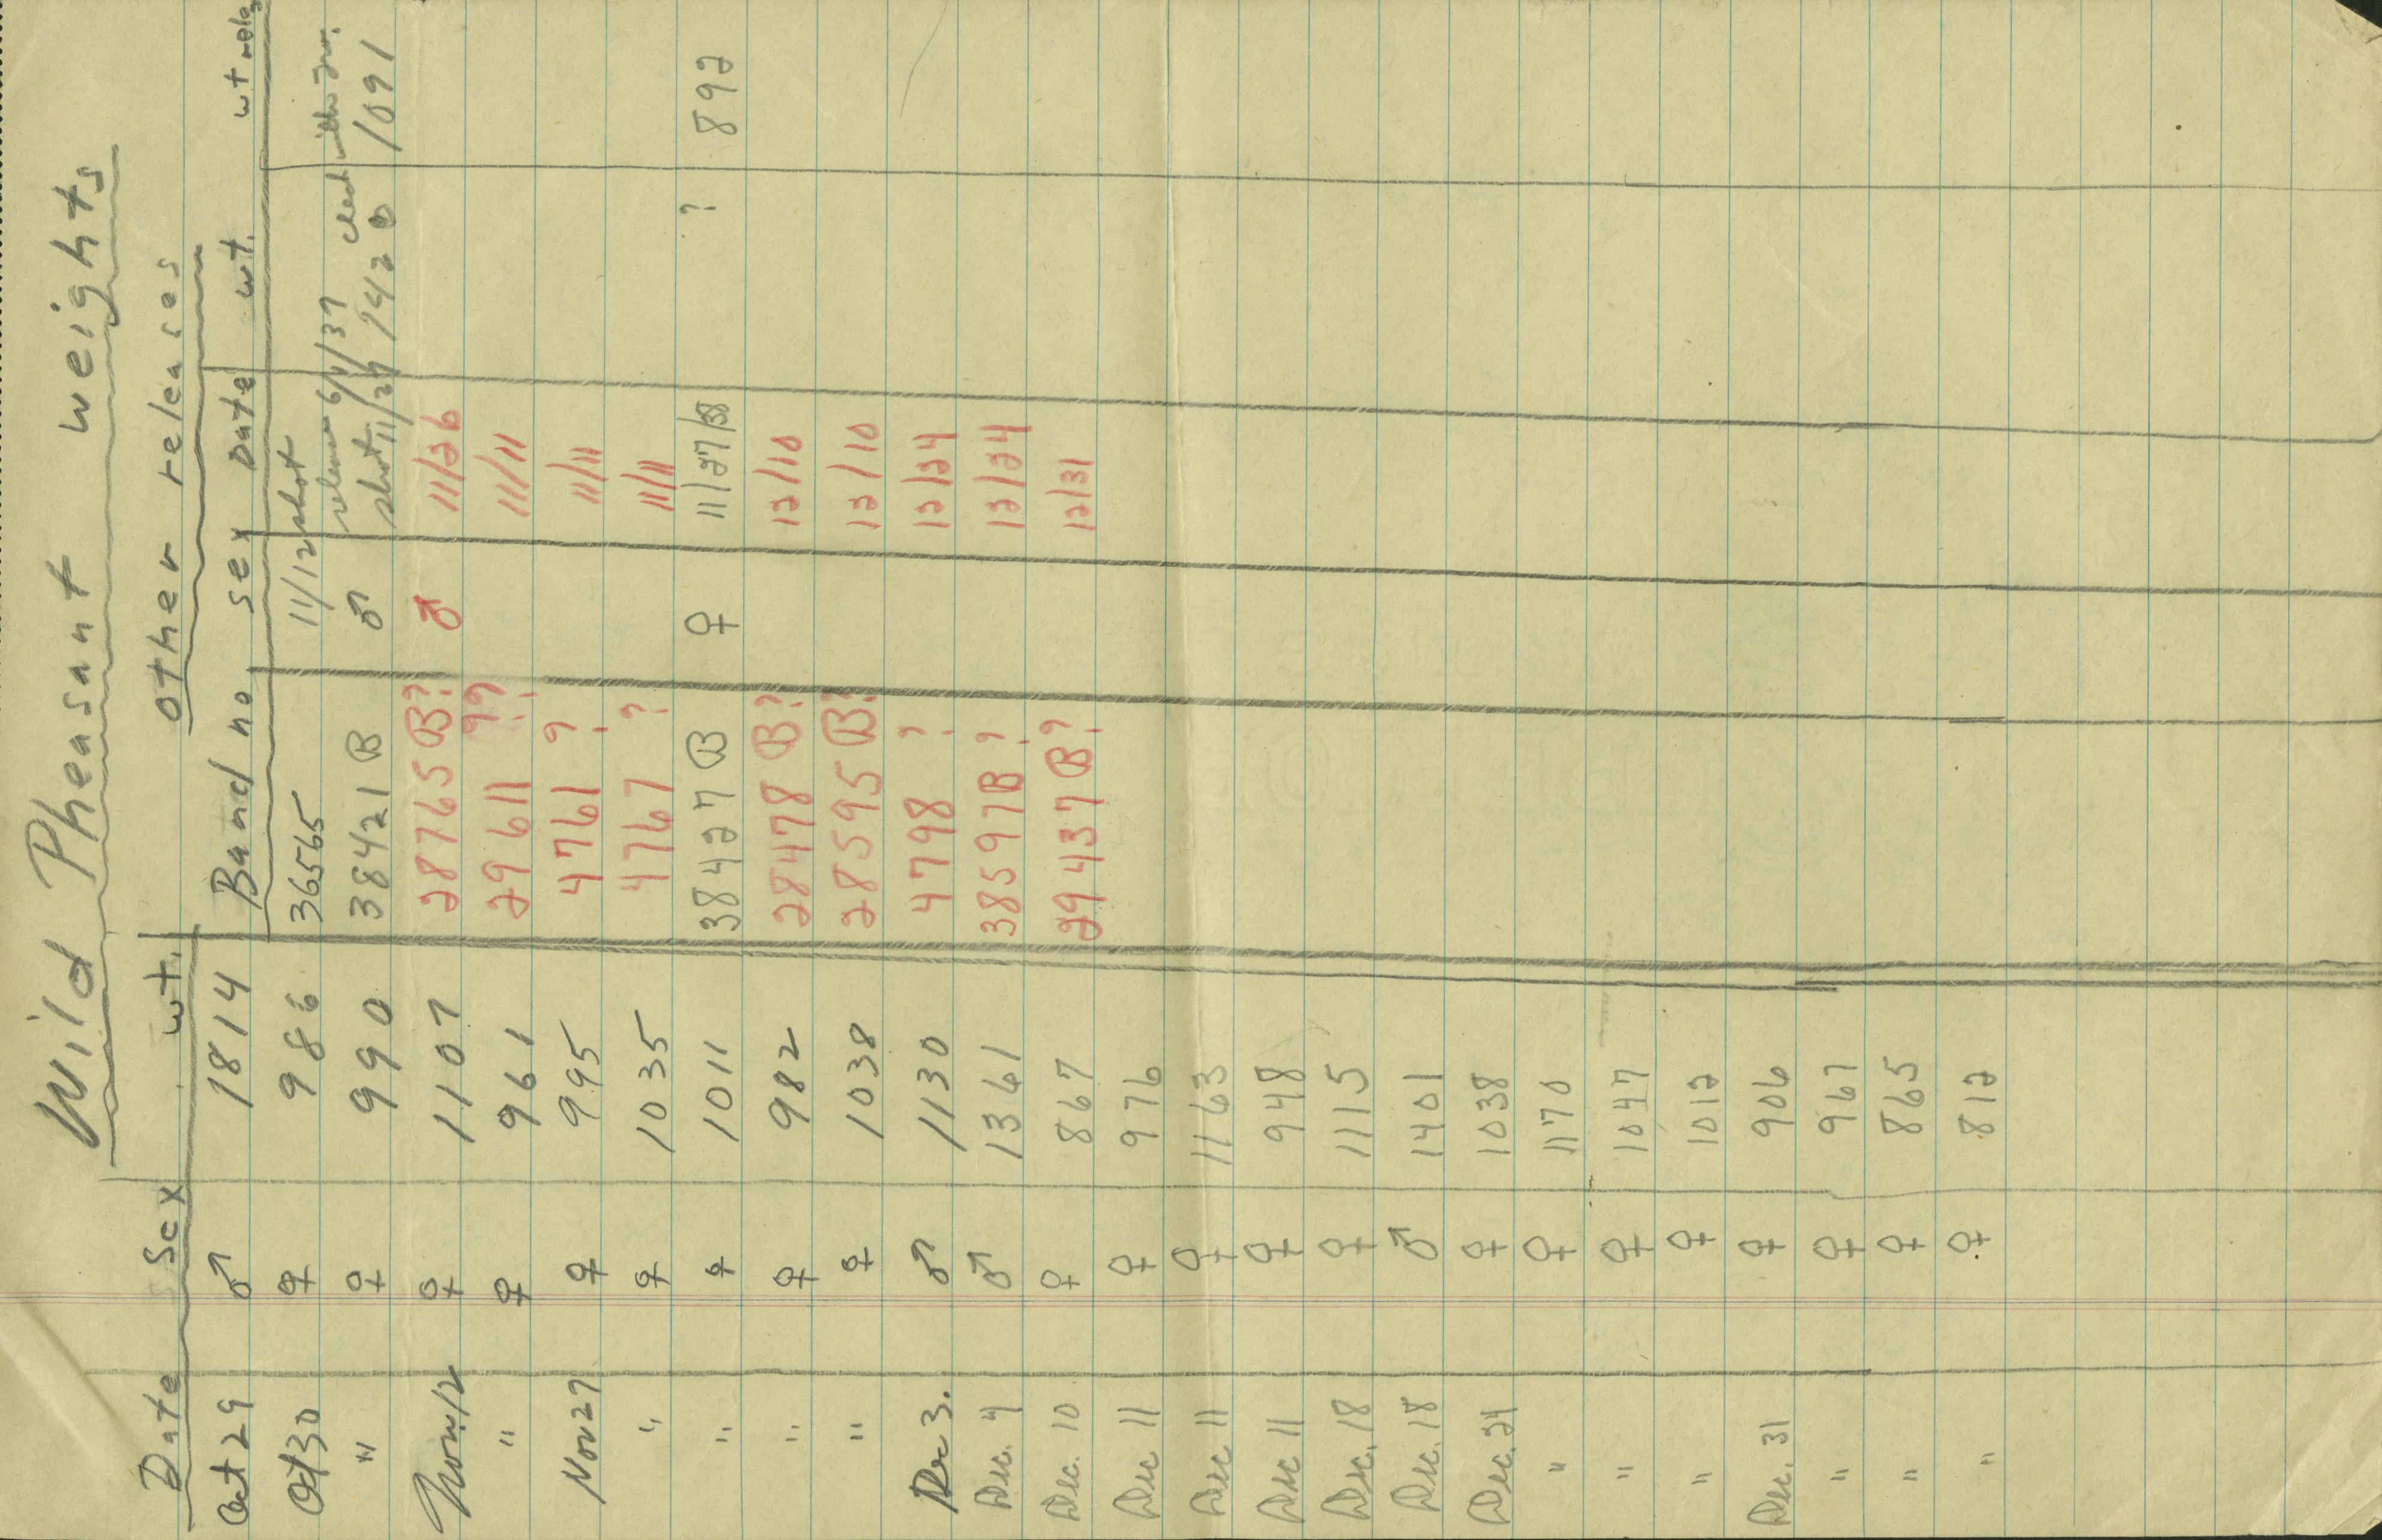 Wild Pheasant weights
other releases
Date Sex wt. Band no sex Date wt. wt rele
Oct 29 ♂ 1814 36565 11/12 shot
Oct 30 ♀ 986 release 6/1/37 Check with Inv.
" ♀ 990 38421 B ♂ shot 11/27 942 B 1091
Nov. 12 ♀ 1107 28765 B? ♂ 11/26
" ♀ 961 29611 ?? 11/11
Nov 27 ♀ 995 4761 ? 11/11
" ♀ 1035 4767 ? 11/11
" ♀ 1011 38427 B ♀ 11/27/38 ? 892
" ♀ 982 28478 B? 12/10
" ♀ 1038 28595 B? 12/10
Dec 3. ♂ 1130 4798 ? 12/24
Dec. 4 ♂ 1361 38597B? 12/24
Dec. 10 ♀ 867 29437 B? 12/31
Dec 11 ♀ 976
Dec 11 ♀ 1163
Dec 11 ♀ 948
Dec. 18 ♀ 1115
Dec. 18 ♂ 1401
Dec. 24 ♀ 1038
" ♀ 1170
" ♀ 1047
" ♀ 1012
Dec. 31 ♀ 906
" ♀ 967
" ♀ 865
" ♀ 812